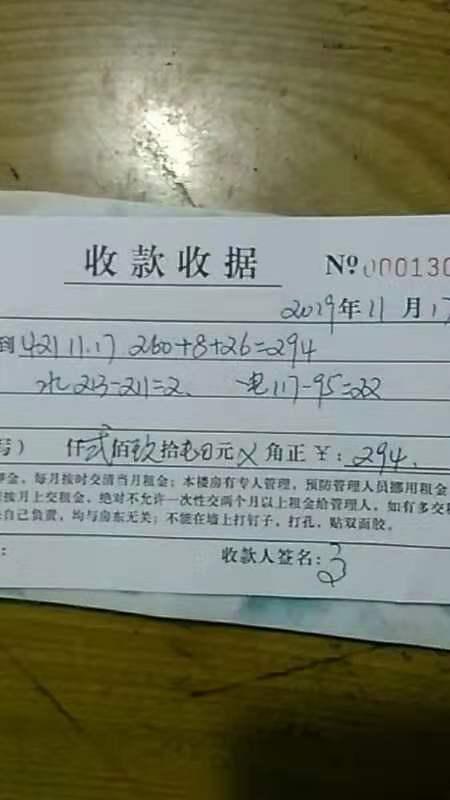 收款收据 Nº 000130
2019年11月17
到 421 11.17 260+8+26=294
水213-211=2、 电117-95=22
写） 仟贰佰玖拾 元 X 角正 ￥：294.
金，每月按时交清当月租金；本楼房有专人管理，预防管理人员挪用租金
按月上交租金，绝对不允许一次性交两个月以上租金给管理人，如有多交租
自己负责，均与房东无关；不能在墙上打钉子，打孔，贴双面胶。
：
收款人签名：